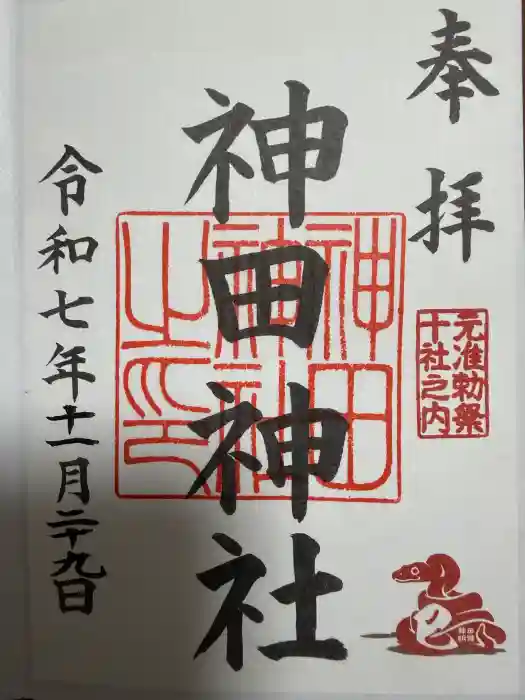 奉拝
元准勅祭
十社之内
神田神社
神田
神社
之印
令和七年十一月二十九日
巳